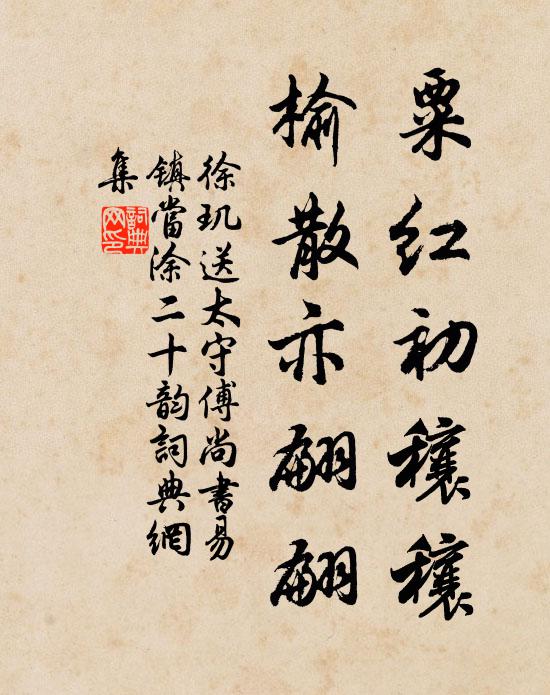 粟紅初穰穰
榆散亦翩翩
徐玑送太守傅尚書易
鎮當涂二十韵詞典網
集
詞典
网印